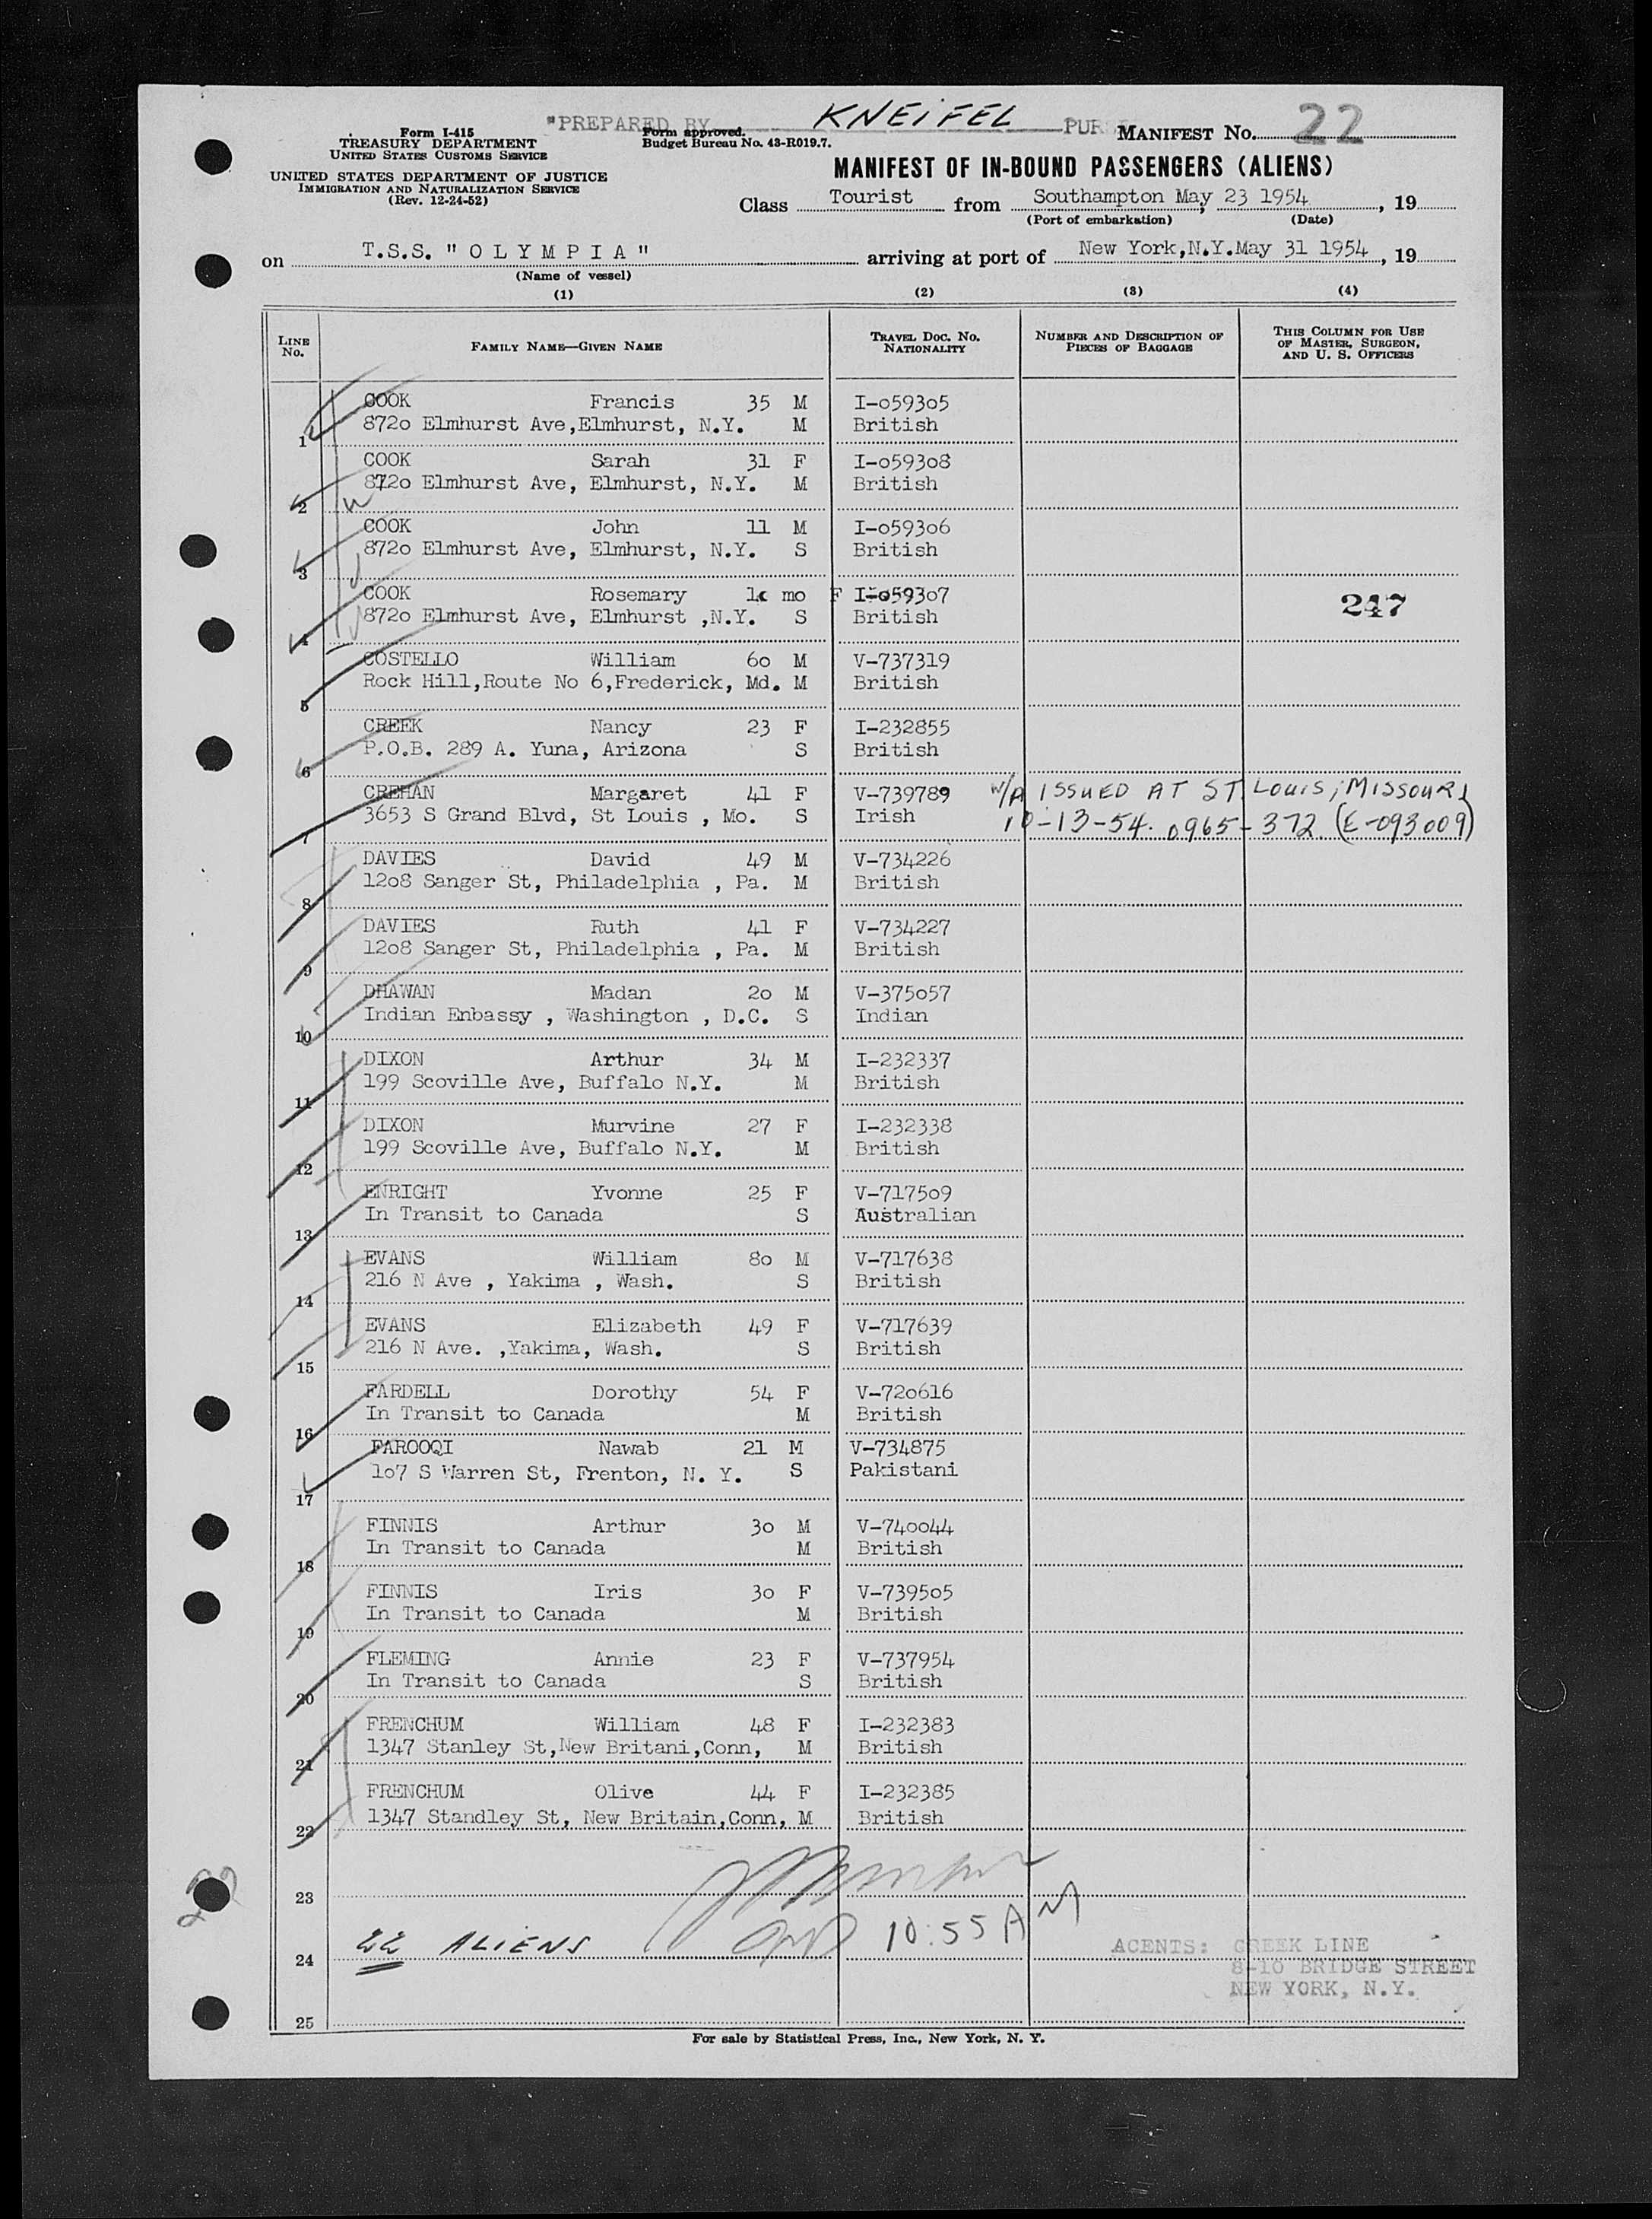 "PREPARED BY KNEIFEL PUR
Form I-415
TREASURY DEPARTMENT
UNITED STATES CUSTOMS SERVICE
UNITED STATES DEPARTMENT OF JUSTICE
IMMIGRATION AND NATURALIZATION SERVICE
(Rev. 12-24-52)
Form approved.
Budget Bureau No. 43-R019.7.
MANIFEST No. 22
MANIFEST OF IN-BOUND PASSENGERS (ALIENS)
Class Tourist from Southampton May 23 1954, 19
(Port of embarkation) (Date)
on T.S.S. " O L Y M P I A " arriving at port of New York,N.Y.May 31 1954, 19
(Name of vessel)
(1) (2) (3) (4)
LINE No. FAMILY NAME—GIVEN NAME TRAVEL DOC. No. NATIONALITY NUMBER AND DESCRIPTION OF PIECES OF BAGGAGE THIS COLUMN FOR USE OF MASTER, SURGEON, AND U. S. OFFICERS
COOK Francis 35 M I-o593o5
1 872o Elmhurst Ave,Elmhurst, N.Y. M British
COOK Sarah 31 F I-o593o8
2 872o Elmhurst Ave, Elmhurst, N.Y. M British
COOK John 11 M I-o593o6
3 872o Elmhurst Ave, Elmhurst, N.Y. S British
COOK Rosemary mo F I-o593o7
4 872o Elmhurst Ave, Elmhurst ,N.Y. S British 247
COSTELLO William 6o M V-737319
5 Rock Hill,Route No 6,Frederick, Md. M British
CREEK Nancy 23 F I-232855
6 P.O.B. 289 A. Yuna, Arizona S British
CREHAN Margaret 41 F V-739789 W/A ISSUED AT ST. LOUIS, MISSOURI
7 3653 S Grand Blvd, St Louis , Mo. S Irish 10-13-54. 0965-372 (E-093009)
DAVIES David 49 M V-734226
8 12o8 Sanger St, Philadelphia , Pa. M British
DAVIES Ruth 41 F V-734227
9 12o8 Sanger St, Philadelphia , Pa. M British
DHAWAN Madan 2o M V-375o57
10 Indian Enbassy , Washington , D.C. S Indian
DIXON Arthur 34 M I-232337
11 199 Scoville Ave, Buffalo N.Y. M British
DIXON Murvine 27 F I-232338
12 199 Scoville Ave, Buffalo N.Y. M British
ENRIGHT Yvonne 25 F V-7175o9
13 In Transit to Canada S Australian
EVANS William 8o M V-717638
14 216 N Ave , Yakima , Wash. S British
EVANS Elizabeth 49 F V-717639
15 216 N Ave. ,Yakima, Wash. S British
FARDELL Dorothy 54 F V-72o616
16 In Transit to Canada M British
FAROOQI Nawab 21 M V-734875
17 1o7 S Warren St, Frenton, N. Y. S Pakistani
FINNIS Arthur 3o M V-74oo44
18 In Transit to Canada M British
FINNIS Iris 3o F V-7395o5
19 In Transit to Canada M British
FLEMING Annie 23 F V-737954
20 In Transit to Canada S British
FRENCHUM William 48 F I-232383
21 1347 Stanley St,New Britani,Conn, M British
FRENCHUM Olive 44 F I-232385
22 1347 Standley St, New Britain,Conn, M British
23
22 ALIENS 10:55 AM
24
AGENTS: GREEK LINE
8-10 BRIDGE STREET
NEW YORK, N.Y.
25
For sale by Statistical Press, Inc., New York, N. Y.